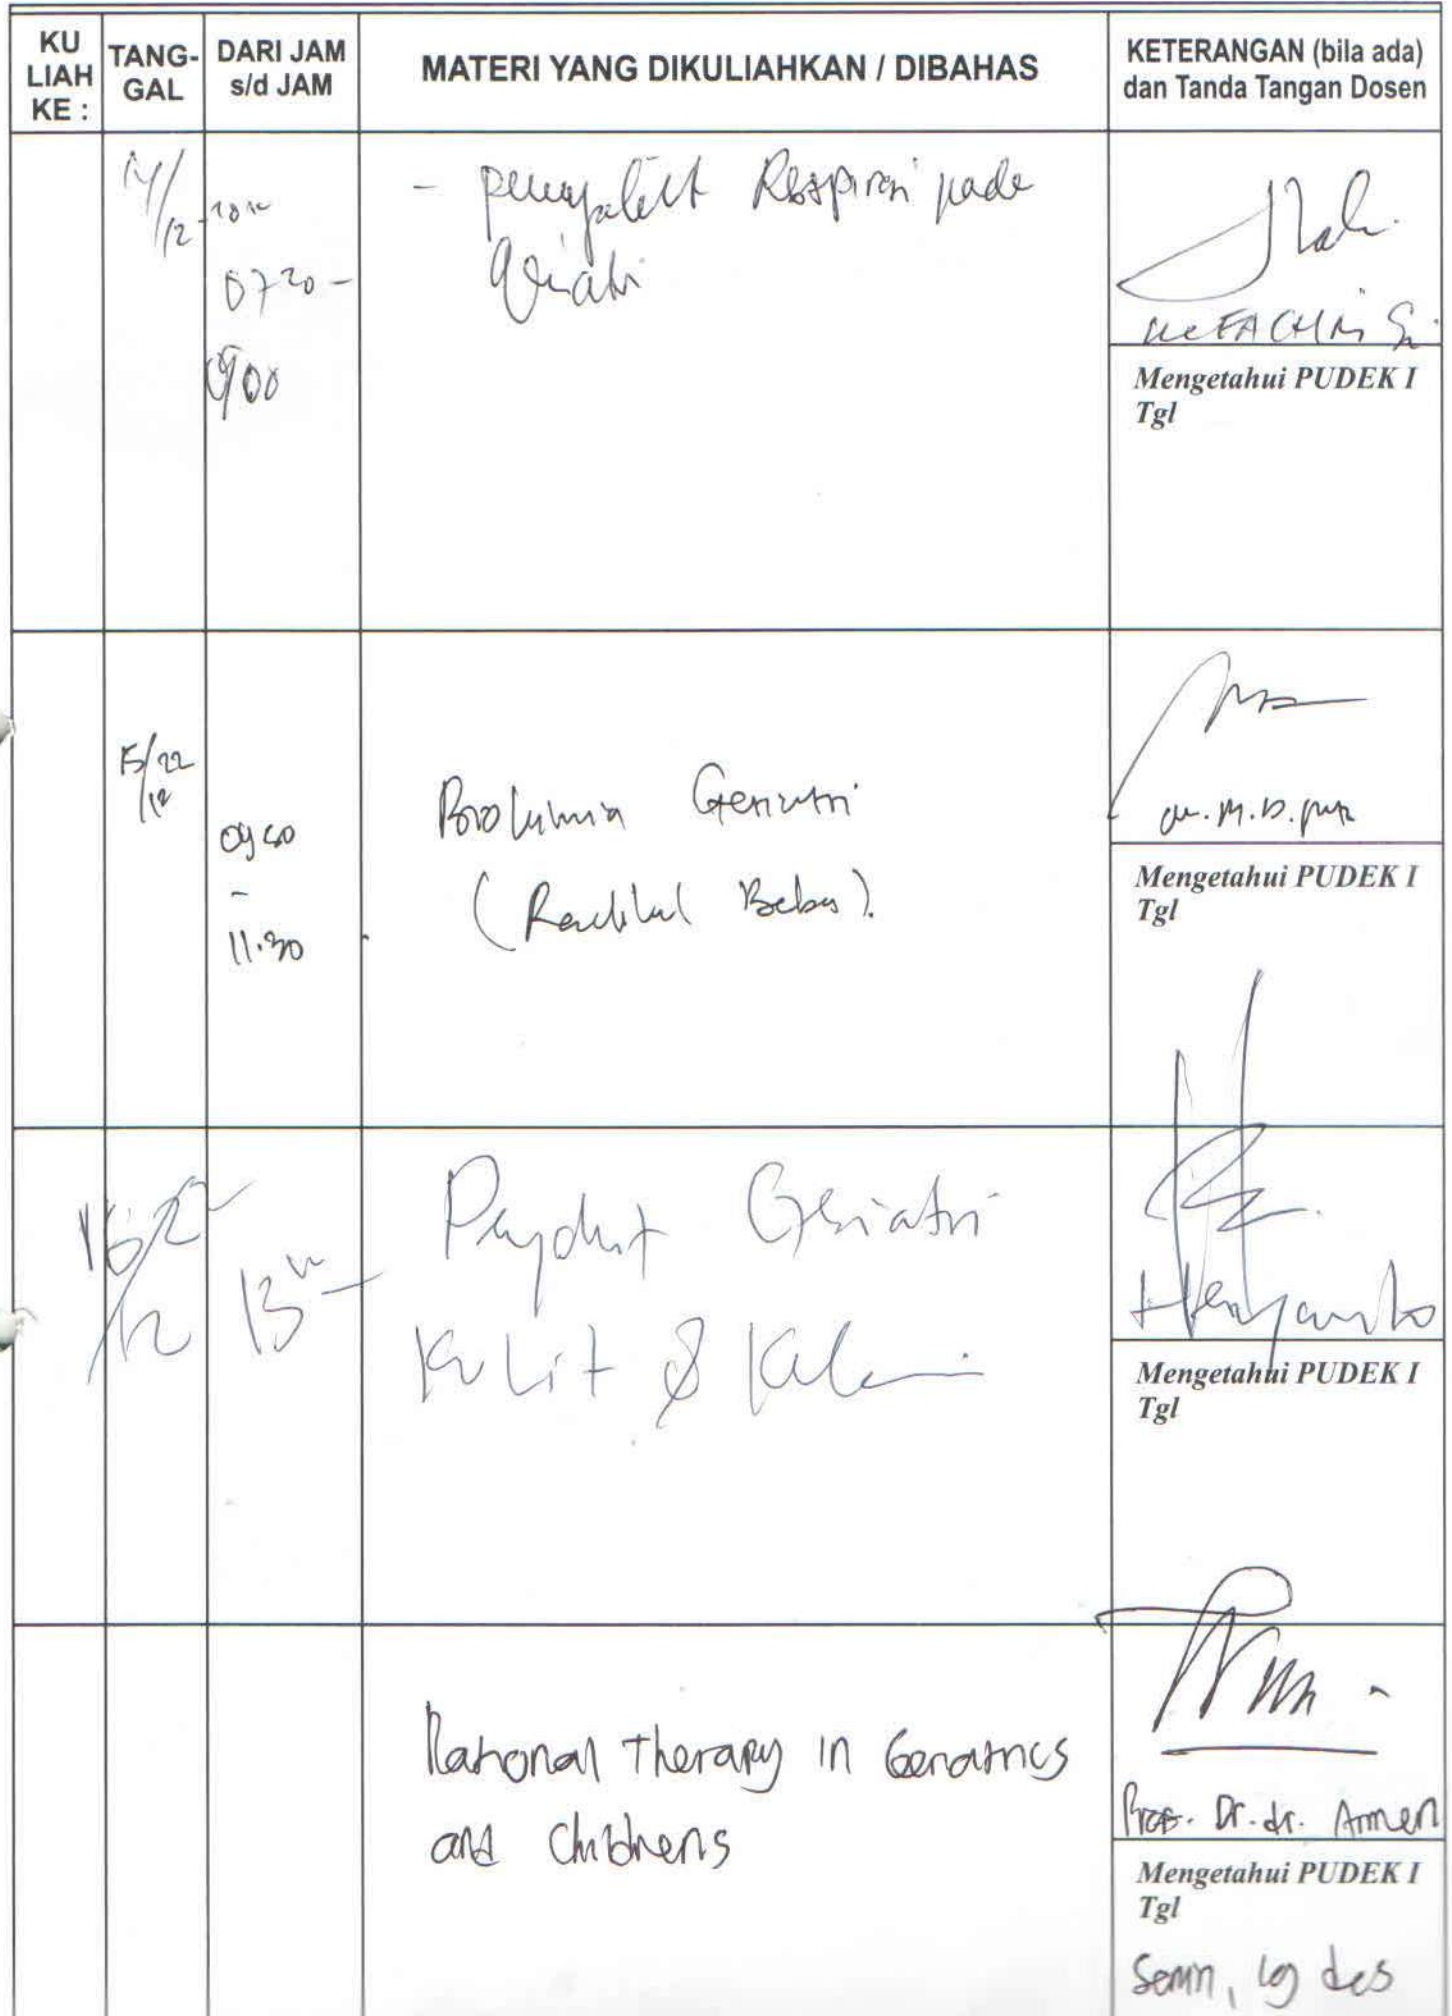 KU LIAH KE :
TANG-GAL
DARI JAM s/d JAM
MATERI YANG DIKULIAHKAN / DIBAHAS
KETERANGAN (bila ada) dan Tanda Tangan Dosen
14/12
0720 -
0900
- penyakit Respirasi pada
Geriatri
Mengetahui PUDEK I
Tgl
15/22
12
0940
-
11.30
Biokimia Geriatri
(Radikal Bebas).
Mengetahui PUDEK I
Tgl
16/22
12
13
Penyakit Geriatri
Kulit & Kelamin
Heryanto
Mengetahui PUDEK I
Tgl
Rational Therapy in Geriatrics
and Childrens
Prof. Dr. dr. Armen
Mengetahui PUDEK I
Tgl
Senin, 19 des